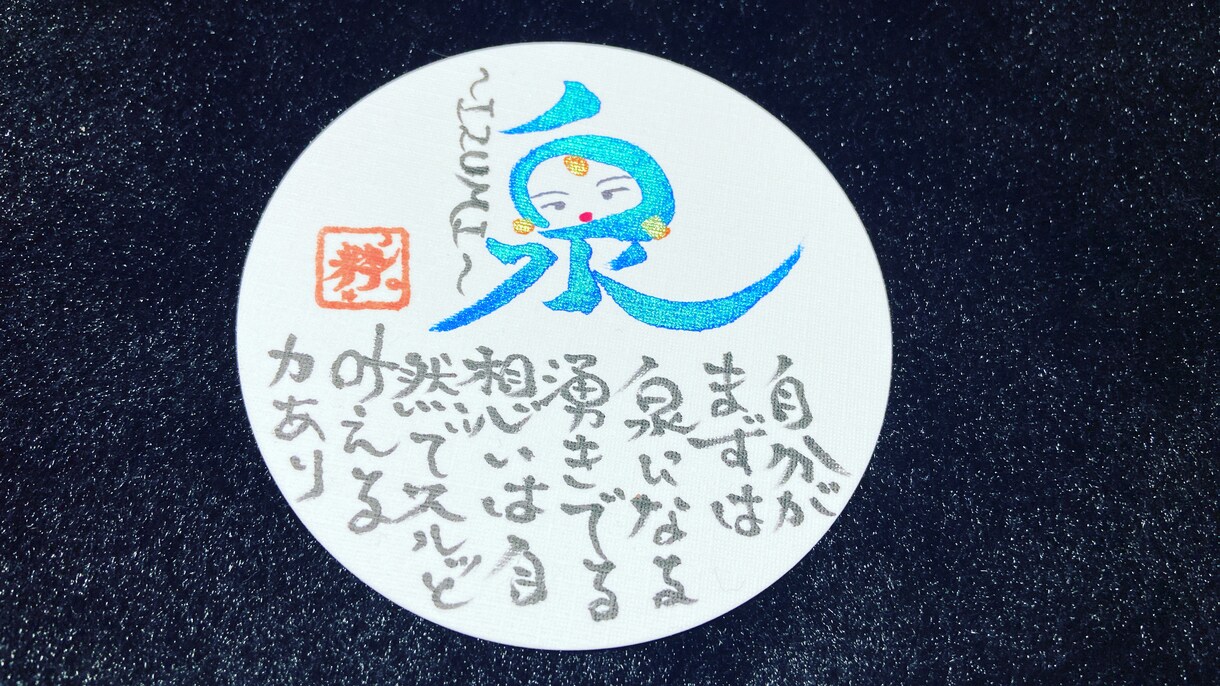 泉
~IZUMI~
自分が
まずは
泉になる
湧きでる
想いは自
然でスルッと
叶える
力あり